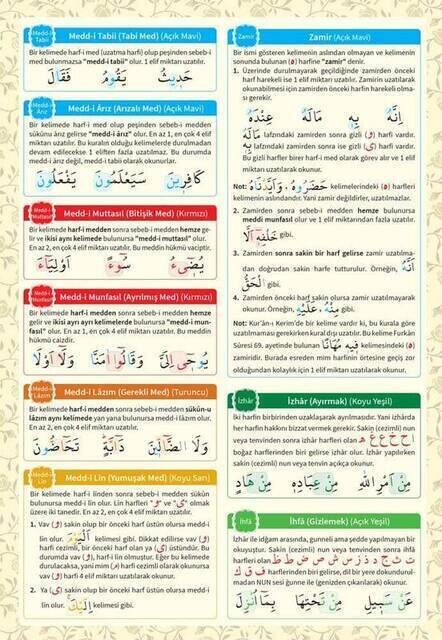 Medd-i Tabii
Medd-i Tabii (Tabi Med) (Açık Mavi)
Bir kelimede harf-i med (uzatma harfi) olup peşinden sebeb-i
med bulunmazsa "medd-i tabii" olur. 1 elif miktarı uzatılır.
حَدِيثُ يَقُومُ فَقَالَ
Medd-i Ârız
Medd-i Ârız (Arızalı Med) (Açık Mavi)
Bir kelimede harf-i med olup peşinden sebeb-i medden
sükûnu ârız gelirse "medd-i ârız" olur. En az 1, en çok 4 elif
miktarı uzatılır. Bu kuralın olduğu kelimelerde durulmadan
devam edilecekse 1 eliften fazla uzatılmaz. Bu durumda
medd-i ârız değil, medd-i tabii olarak okunurlar.
كَافِرِينَ سَيَعْلَمُونَ يَفْعَلُونَ
Medd-i Muttasıl
Medd-i Muttasıl (Bitişik Med) (Kırmızı)
Bir kelimede harf-i medden sonra sebeb-i medden hemze ge-
lir ve ikisi aynı kelimede bulunursa "medd-i muttasıl" olur.
En az 2, en çok 4 elif miktarı uzatılır. Bu meddin hükmü vaciptir.
يُضٖٓيءُ سُٓوءٌ اَوْلِيَٓاءَ
Medd-i Munfasıl
Medd-i Munfasıl (Ayrılmış Med) (Kırmızı)
Bir kelimede harf-i medden sonra sebeb-i medden hemze
gelir ve ikisi ayrı ayrı kelimelerde bulunursa "medd-i mun-
fasıl" olur. En az 1, en çok 4 elif miktarı uzatılır. Bu meddin
hükmü caizdir.
يُوحٰٓى اِلَيَّ وَقَالُٓوا اٰمَنَّا وَلَٓا اَوْلَا
Medd-i Lâzım
Medd-i Lâzım (Gerekli Med) (Turuncu)
Bir kelimede harf-i medden sonra sebeb-i medden sükûn-u
lâzım aynı kelimede yan yana bulunursa medd-i lâzım olur.
En az 2, en çok 4 elif miktarı uzatılır.
وَلَا الضَّٓالّٖينَ دَٓابَّةٍ تَحَٓاضُّونَ
Medd-i Lin
Medd-i Lin (Yumuşak Med) (Koyu Sarı)
Bir kelimede harf-i linden sonra sebeb-i medden sükûn
bulunursa medd-i lin olur. Lin harfleri "وْ" ve "يْ" olmak
üzere iki tanedir. En az 2, en çok 4 elif miktarı uzatılır.
1. Vav (وْ) sakin olup bir önceki harf üstün olursa medd-i
lin olur. kelimesi gibi. Dikkat edilirse vav (و)
harfi cezimli, bir önceki harf olan ya (ي) üstündür. Bu
durumda vav (و), harf-i lin olmuştur. Eğer bu kelimede
durulacaksa, yani mim (م) harfi cezimli olarak okunursa
vav (و) harfi 4 elif miktarı uzatılarak okunabilir.
2. Ya (ي) sakin olup bir önceki harf üstün olursa medd-i
lin olur. اِلَيْكَ kelimesi gibi.
Zamir
Zamir (Açık Mavi)
Bir ismi gösteren kelimenin aslından olmayan ve kelimenin
sonunda bulunan (ه) harfine "zamir" denir.
1. Üzerinde durulmayarak geçildiğinde zamirden önceki
harf harekeli ise zamir uzatılarak okunur. Zamirin uzatılarak
okunabilmesi için zamirden önceki harfin harekeli olma-
sı gerekir.
اِنَّهُ بِهٖ مَالَهُ عِنْدَهُ
مَالَهُ lafzındaki zamirden sonra gizli (و) harfi vardır.
بِهٖ lafzındaki zamirden sonra ise gizli (ي) harfi vardır.
Bu gizli harfler birer harf-i med olarak görev alır ve 1 elif
miktarı uzatılarak okunur.
Not: حَضَرُوهُ ، وَاَيَّدْنَاهُ kelimelerindeki (ه) harfleri
kelimenin aslındandır. Yani zamir değildirler, uzatılmazlar.
2. Zamirden sonra sebeb-i medden hemze bulunursa
meddi munfasıl olur ve 1 elif miktarından fazla uzatılır.
خَلْفِهٖٓ اَلَّا gibi.
3. Zamirden sonra sakin bir harf gelirse zamir uzatılma-
dan doğrudan sakin harfe tutturulur. Örneğin, اَنَّهُ
الْحَقُّ gibi.
4. Zamirden önceki harf sakin olursa zamir uzatılmayarak
okunur. Örneğin, مِنْهُ، عَلَيْهِ gibi.
Not: Kur'ân-ı Kerim'de bir kelime vardır ki, bu kurala göre
uzatılmaması gerekirken kural dışı uzatılır. Bu kelime Furkân
Sûresi 69. ayetinde bulunan فٖيهٖ مُهَانًا kelimesindeki (ه)
zamiridir. Burada esreden mim harfinin ötresine geçiş zor
olduğundan kolaylık için 1 elif miktarı uzatılarak okunur.
İzhâr
İzhâr (Ayırmak) (Koyu Yeşil)
İki harfin birbirinden uzaklaşarak ayrılmasıdır. Yani izhârda
her harfin hakkını bizzat vermek gerekir. Sakin (cezimli) nun
veya tenvinden sonra izhâr harfleri olan ا ح خ ع غ ه
boğaz harflerinden biri gelirse izhâr olur. İzhâr yapılırken
sakin (cezimli) nun veya tenvin açıkça okunur.
مِنْ اَمْرِ اللّٰهِ مِنْ عِبَادِهٖ مِنْ هَادٍ
İhfâ
İhfâ (Gizlemek) (Açık Yeşil)
İzhâr ile idğam arasında, gunneli ama şedde yapılmayan bir
okuyuştur. Sakin (cezimli) nun veya tenvinden sonra ihfâ
harfleri olan ت ث ج د ذ ز س ش ص ض ط ظ
ف ق ك harflerinden biri gelirse, dil bir yere dokundurul-
madan NUN sesi ğunne ile (genizden çıkarılarak) okunur.
عَنْ سَبٖيلِ مِنْ تَحْتِهَا بِمَا اُنْزِلَ